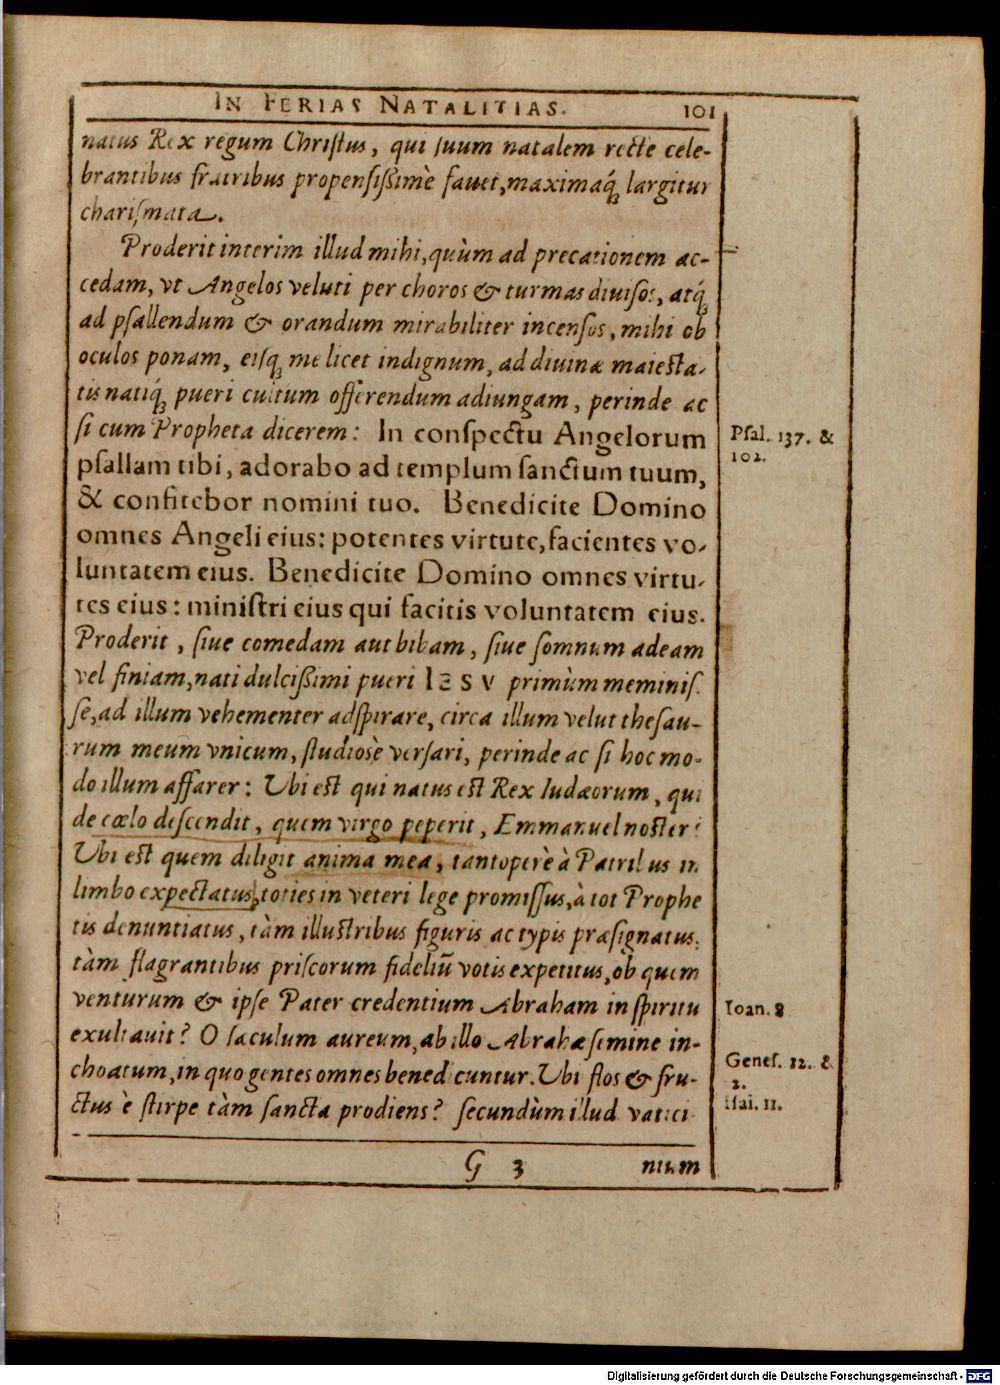 IN FERIAS NATALITIAS. 101
natus Rex regum Chriſtus, qui ſuum natalem recte cele-
brantibus fratribus propenſißimè fauet, maximaq́ꝫ largitur
chariſmata.
Proderit interim illud mihi, quùm ad precationem ac-
cedam, vt Angelos veluti per choros & turmas diuiſos, atq́ꝫ
ad pſallendum & orandum mirabiliter incenſos, mihi ob
oculos ponam, eiſqꝫ me licet indignum, ad diuinæ maieſta-
tis natiq́ꝫ pueri cultum offerendum adiungam, perinde ac
ſi cum Propheta dicerem: In conſpectu Angelorum
Pſal. 137. &
102.
pſallam tibi, adorabo ad templum ſanctum tuum,
& confitebor nomini tuo. Benedicite Domino
omnes Angeli eius: potentes virtute, facientes vo-
luntatem eius. Benedicite Domino omnes virtu-
tes eius: miniſtri eius qui facitis voluntatem eius.
Proderit, ſiue comedam aut bibam, ſiue ſomnum adeam
vel finiam, nati dulcißimi pueri IESV primùm meminiſ-
ſe, ad illum vehementer adſpirare, circa illum velut theſau-
rum meum vnicum, ſtudiosè verſari, perinde ac ſi hoc mo-
do illum affarer: Ubi eſt qui natus eſt Rex Iudæorum, qui
de cœlo deſcendit, quem virgo peperit, Emmanuel noſter?
Ubi eſt quem diligit anima mea, tantoperè à Patribus in
limbo expectatus, toties in veteri lege promiſſus, à tot Prophe
tis denuntiatus, tàm illuſtribus figuris ac typis præſignatus,
tàm flagrantibus priſcorum fideliũ votis expetitus, ob quem
venturum & ipſe Pater credentium Abraham in ſpiritu
Ioan. 8
exultauit? O ſæculum aureum, ab illo Abrahæ ſemine in-
choatum, in quo gentes omnes benedicuntur. Ubi flos & fru-
Geneſ. 12. &
2.
Iſai. 11.
ctus è ſtirpe tàm ſancta prodiens? ſecundùm illud vatici
G 3 nium
Digitalisierung gefördert durch die Deutsche Forschungsgemeinschaft - DFG